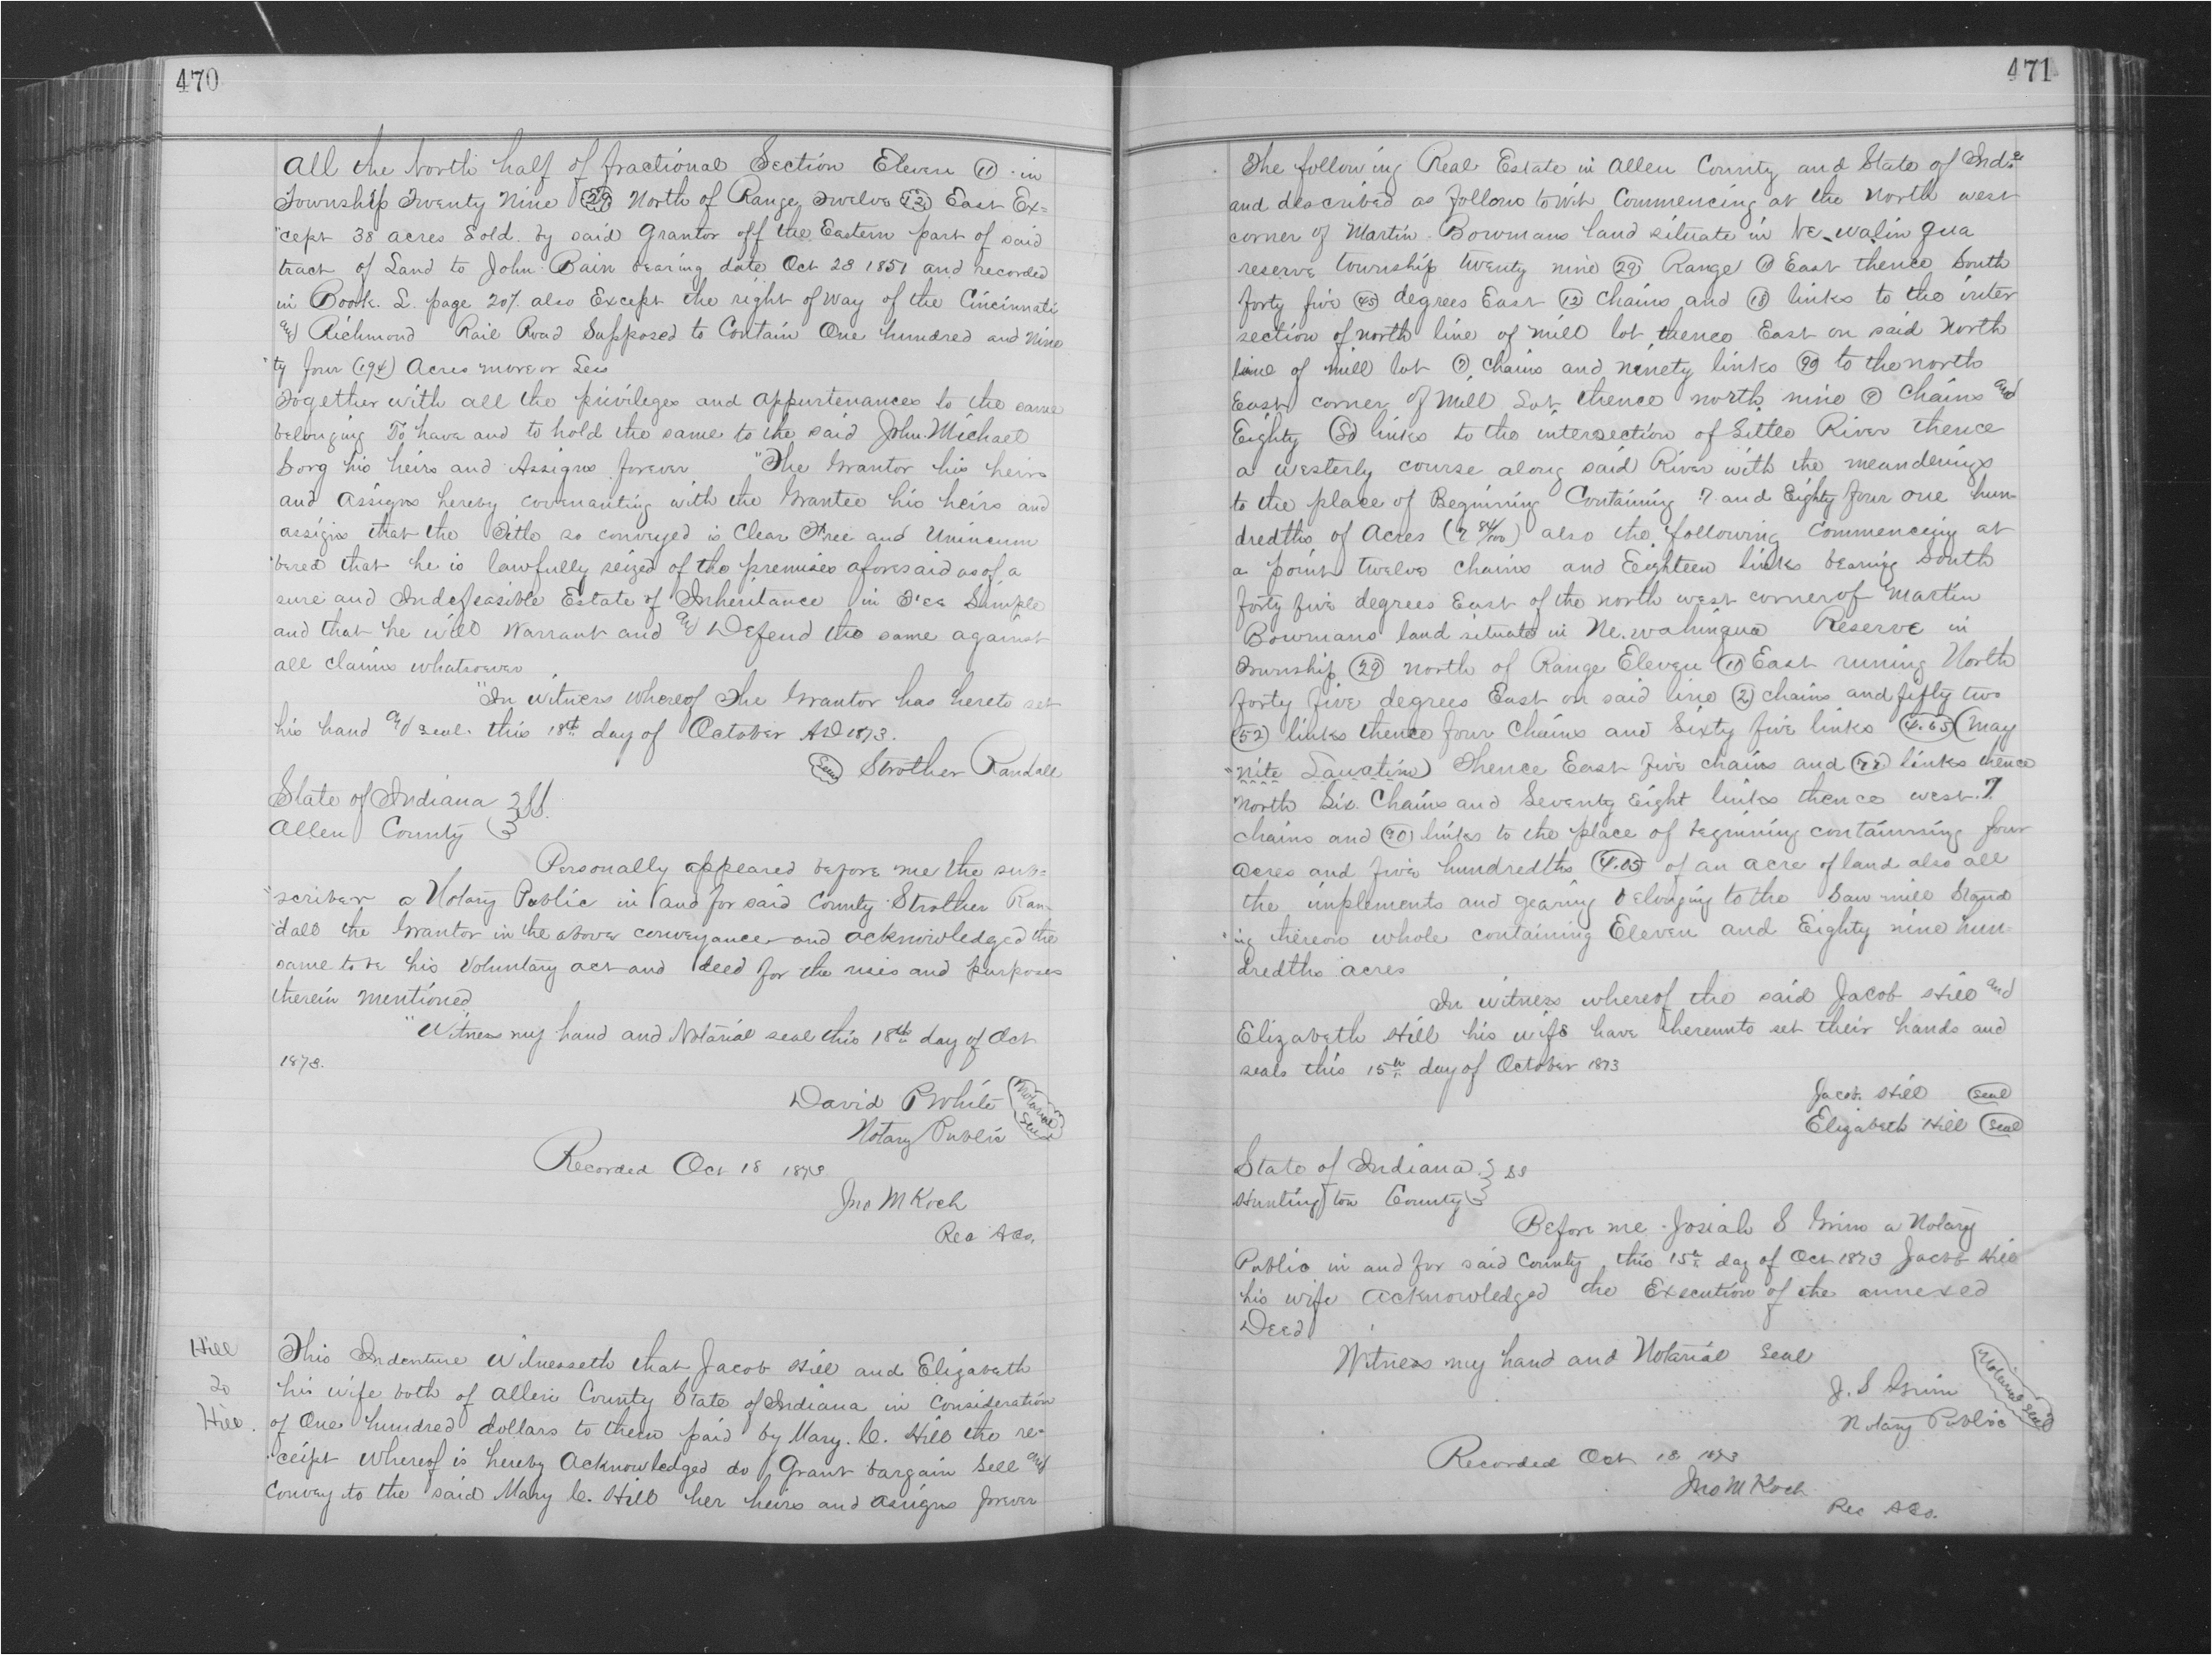 470
All the North half of fractional Section Eleven (11) in
Township Twenty Nine (29) North of Range Twelve (12) East Ex=
"cept 38 acres Sold by said Grantor off the Eastern part of said
tract of Land to John Bain bearing date Oct 28 1851 and recorded
in Book L. page 207. also Except the right of way of the Cincinnati
and Richmond Rail Road Supposed to Contain One hundred and Nine
"ty four (194) Acres more or Less
Together with all the privileges and appurtenances to the same
belonging To have and to hold the same to the said John Michael
borg his heirs and Assigns forever "The Grantor his heirs
and assigns hereby covenanting with the Grantee his heirs and
assigns that the Title so conveyed is Clear Free and Unincum
"bered that he is lawfully seized of the premises aforesaid as of a
sure and Indefeasible Estate of Inheritance in Fee Simple
and that he will Warrant and and Defend the same against
all claims whatsoever
"In Witness Whereof The Grantor has hereto set
his hand and seal this 18th day of October AD 1873.
Seal Strother Randall
State of Indiana } SS.
Allen County }
Personally appeared before me the sub=
"scriber a Notary Public in and for said County Strother Ran-
"dall the Grantor in the above conveyance and acknowledged the
same to be his Voluntary act and deed for the uses and purposes
therein mentioned
"Witness my hand and Notarial seal this 18th day of Oct
1873.
David P White Notarial Seal
Notary Public
Recorded Oct 18 1873
Jno M Koch
Rec A Co.
Hill
To
Hill.
This Indenture Witnesseth that Jacob Hill and Elizabeth
his wife both of Allen County State of Indiana in Consideration
of One hundred dollars to them paid by Mary C. Hill the re-
"ceipt Whereof is hereby Acknowledged do Grant bargain Sell and
Convey to the said Mary C. Hill her heirs and assigns forever
471
The following Real Estate in Allen County and State of Inda
and described as follows to wit Commencing at the North west
corner of Martin Bowmans land situate in Ne-walin gua
reserve township twenty nine (29) Range (11) East thence South
forty five (45) degrees East (12) Chains and (18) links to the inter
section of north line of mill lot thence East on said North
line of mill lot (7) chains and ninety links (90) to the north
East corner of Mill Lot thence north nine (9) Chains and
Eighty (80) links to the intersection of Little River thence
a westerly course along said River with the meanderings
to the place of Beginning Containing 7 and Eighty four one hun-
dredths of Acres (7 84/100) also the following Commencing at
a point twelve chains and Eighteen links bearing South
forty five degrees East of the north west corner of Martin
Bowmans land situate in Ne.wahingua Reserve in
Township (29) north of Range Eleven (11) East runing North
forty five degrees East on said line (2) chains and fifty two
(52) links thence four Chains and Sixty five links (4.65) (may
"nite) Thence East five chains and links thence
North Six Chains and Seventy Eight links thence west 7
chains and (90) links to the place of beginning containning four
acres and five hundredths (4.05) of an acre of land also all
the implements and gearing belonging to the Saw mill Stand
"ing thereon whole containing Eleven and Eighty nine hun-
dredths acres
In witness whereof the said Jacob Hill and
Elizabeth Hill his wife have hereunto set their hands and
seals this 15th day of October 1873
Jacob Hill Seal
Elizabeth Hill Seal
State of Indiana } SS
Huntington County }
Before me Josiah S Grim a Notary
Public in and for said County this 15th day of Oct 1873 Jacob Hill
his wife acknowledged the Execution of the annexed
Deed
Witness my hand and Notarial Seal
J. S Grim Notarial Seal
Notary Public
Recorded Oct 18 1873
Jno M Koch
Rec A Co.